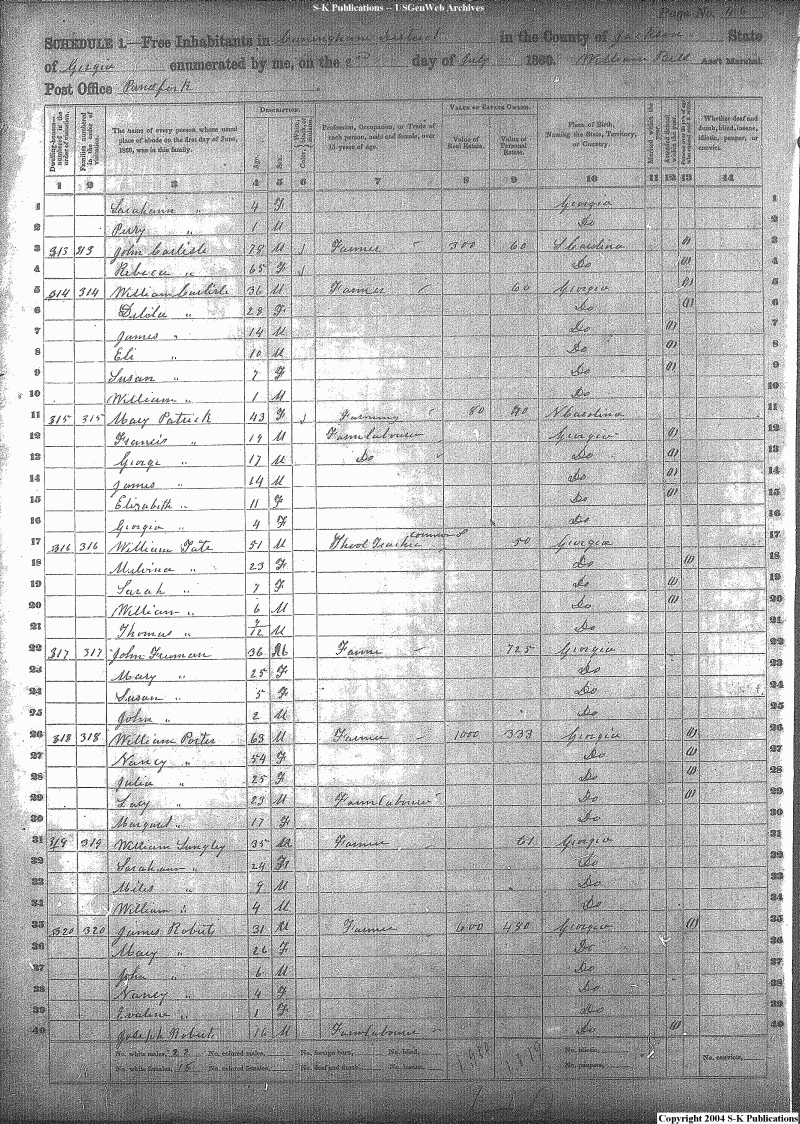 S-K Publications -- USGenWeb Archives
Page No. 44
SCHEDULE 1.—Free Inhabitants in Cuningham District in the County of Jackson State
of Georgia enumerated by me, on the 2nd day of July 1860. William Bell Ass't Marshal
Post Office
Dwelling-houses—numbered in the order of visitation. Families numbered in the order of visitation. The name of every person whose usual place of abode on the first day of June, 1860, was in this family. DESCRIPTION. Age. Sex. Color, Profession, Occupation, or Trade of each person, male and female, over 15 years of age. VALUE OF ESTATE OWNED. Value of Real Estate. Value of Personal Estate. Place of Birth, Naming the State, Territory, or Country. Married within the year. Attended School within the year. Whether deaf and dumb, blind, insane, idiotic, pauper, or convict.
1 2 3 4 5 6 7 8 9 10 11 12 13 14
1 Sarahann " 4 F Georgia 1
2 Perry " 1 M Do 2
3 313 313 John Carlisle 78 M Farmer 300 60 S. Carolina (1) 3
4 Rebecca " 65 F Do (1) 4
5 314 314 William Carlisle 36 M Farmer 60 Georgia (1) 5
6 Delila " 28 F Do (1) 6
7 James " 14 M Do (1) 7
8 Eli " 10 M Do (1) 8
9 Susan " 7 F Do (1) 9
10 William " 1 M Do 10
11 315 315 Mary Patrick 43 F Farming 80 40 N Carolina 11
12 Francis " 19 M Farm Labourer Georgia (1) 12
13 George " 17 M Do Do (1) 13
14 James " 14 M Do (1) 14
15 Elizabeth " 11 F Do (1) 15
16 Georgia " 4 F Do 16
17 316 316 William Tate 51 M Common S 50 Georgia 17
18 Melvina " 23 F Do (1) 18
19 Sarah " 7 F Do (1) 19
20 William " 6 M Do (1) 20
21 Thomas " 7/12 M Do 21
22 317 317 John Truman 36 M Farmer 725 Georgia 22
23 Mary " 25 F Do 23
24 Susan " 5 F Do 24
25 John " 2 M Do 25
26 318 318 William Porter 63 M Farmer 1000 333 Georgia (1) 26
27 Nancy " 54 F Do (1) 27
28 Julia " 25 F Do (1) 28
29 " 23 M Farm Labourer Do (1) 29
30 Margaret " 17 F Do 30
31 319 319 William Langley 35 M Farmer 61 Georgia 31
32 Sarahann " 24 F Do 32
33 Miles " 9 M Do 33
34 William " 4 M Do 34
35 320 320 James Roberts 31 M Farmer 600 480 Georgia (1) 35
36 Mary " 26 F Do 36
37 John " 6 M Do 37
38 Nancy " 4 F Do 38
39 Evaline " 1 F Do 39
40 Joseph Roberts 16 M Farm Labourer Do (1) 40
No. white males, 22 No. colored males, No. foreign born, No. blind, 1,980 No. idiotic, No. convicts,
No. white females, 18 No. colored females, No. deaf and dumb, No. insane, No. paupers,
Copyright 2004 S-K Publications